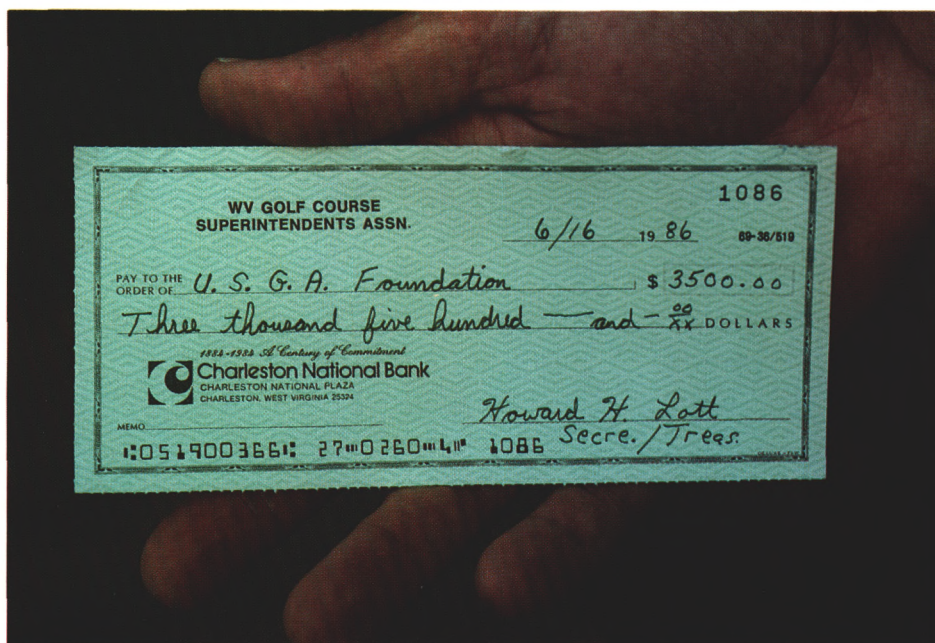 1086
WV GOLF COURSE
SUPERINTENDENTS ASSN.
6/16 19 86 69-36/519
PAY TO THE
ORDER OF U. S. G. A. Foundation $ 3500.00
Three thousand five hundred — and - 00/XX DOLLARS
1884-1984 A Century of Commitment
Charleston National Bank
CHARLESTON NATIONAL PLAZA
CHARLESTON, WEST VIRGINIA 25324
Howard H. Lott
MEMO Secre./Treas.
⑆051900366⑆ 27⑉0260⑉4⑈ 1086